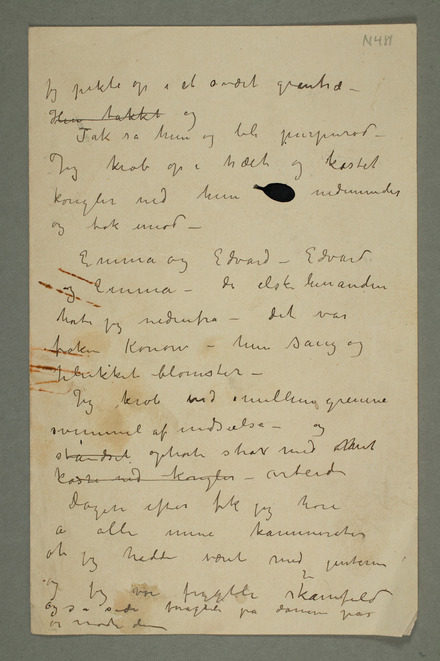 N 481
Jeg pekte op i et andet grantræ –
Hun takket og
Tak sa hun og ble purpurrød –
Jeg krøb op i træet og kastet
kongler ned hun nedenunder
og tok imod –
Emma og Edvard – Edvard
og Emma – de elsker hinanden
hørte jeg nedenfra – det var
frøken Konow – hun sang og
plukket blomster –
Jeg krøb ned imellem grenene
svimmel af undseelse – og
standset ophørte strax med
kaste ned kongler – arbeid
Dagen efter fik jeg høre
a alle mine kammerater
at jeg hadde været med jenterne
og jeg var frygtelig skamfuld
og så siden på damene når
jeg mødte dem